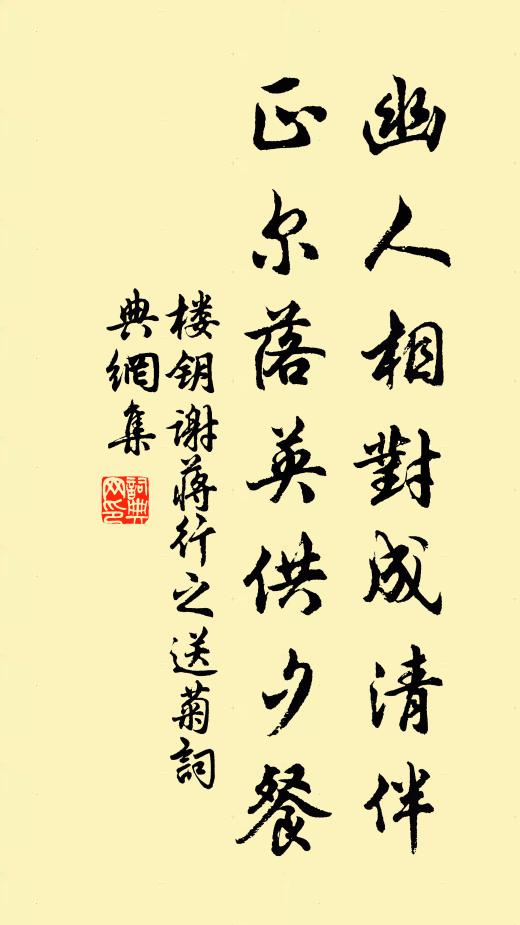 幽人相對成清伴
正尔落英供夕餐
楼钥谢蒋行之送菊詞
典網集
詞典
网印